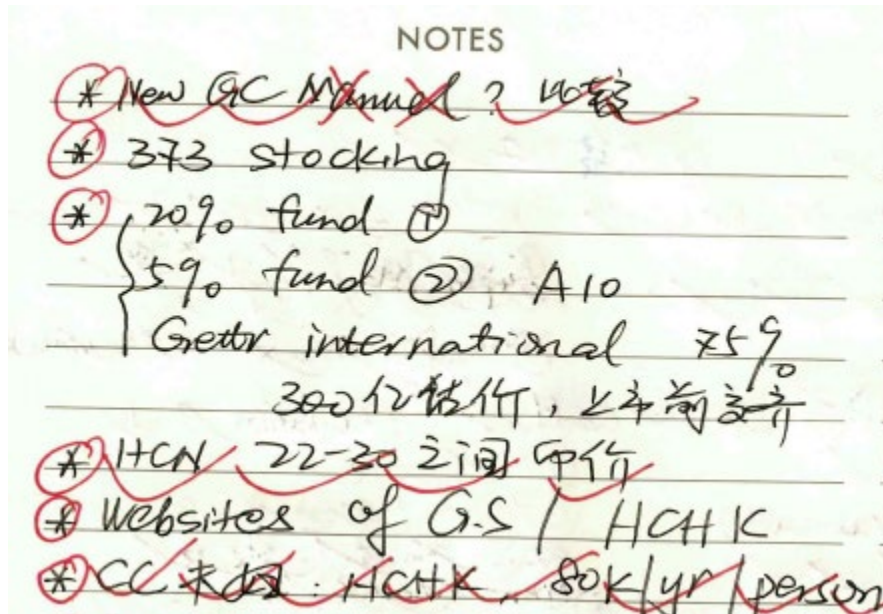 NOTES
* New GC Manuel ?
* 373 stocking
* 20% fund ①
5% fund ② A10
Gettr international 75%
300亿估价，上市前
* HCN 22-30之间 币价
* Websites of G.S / HCHK
* CC HCHK, 80K/yr/person